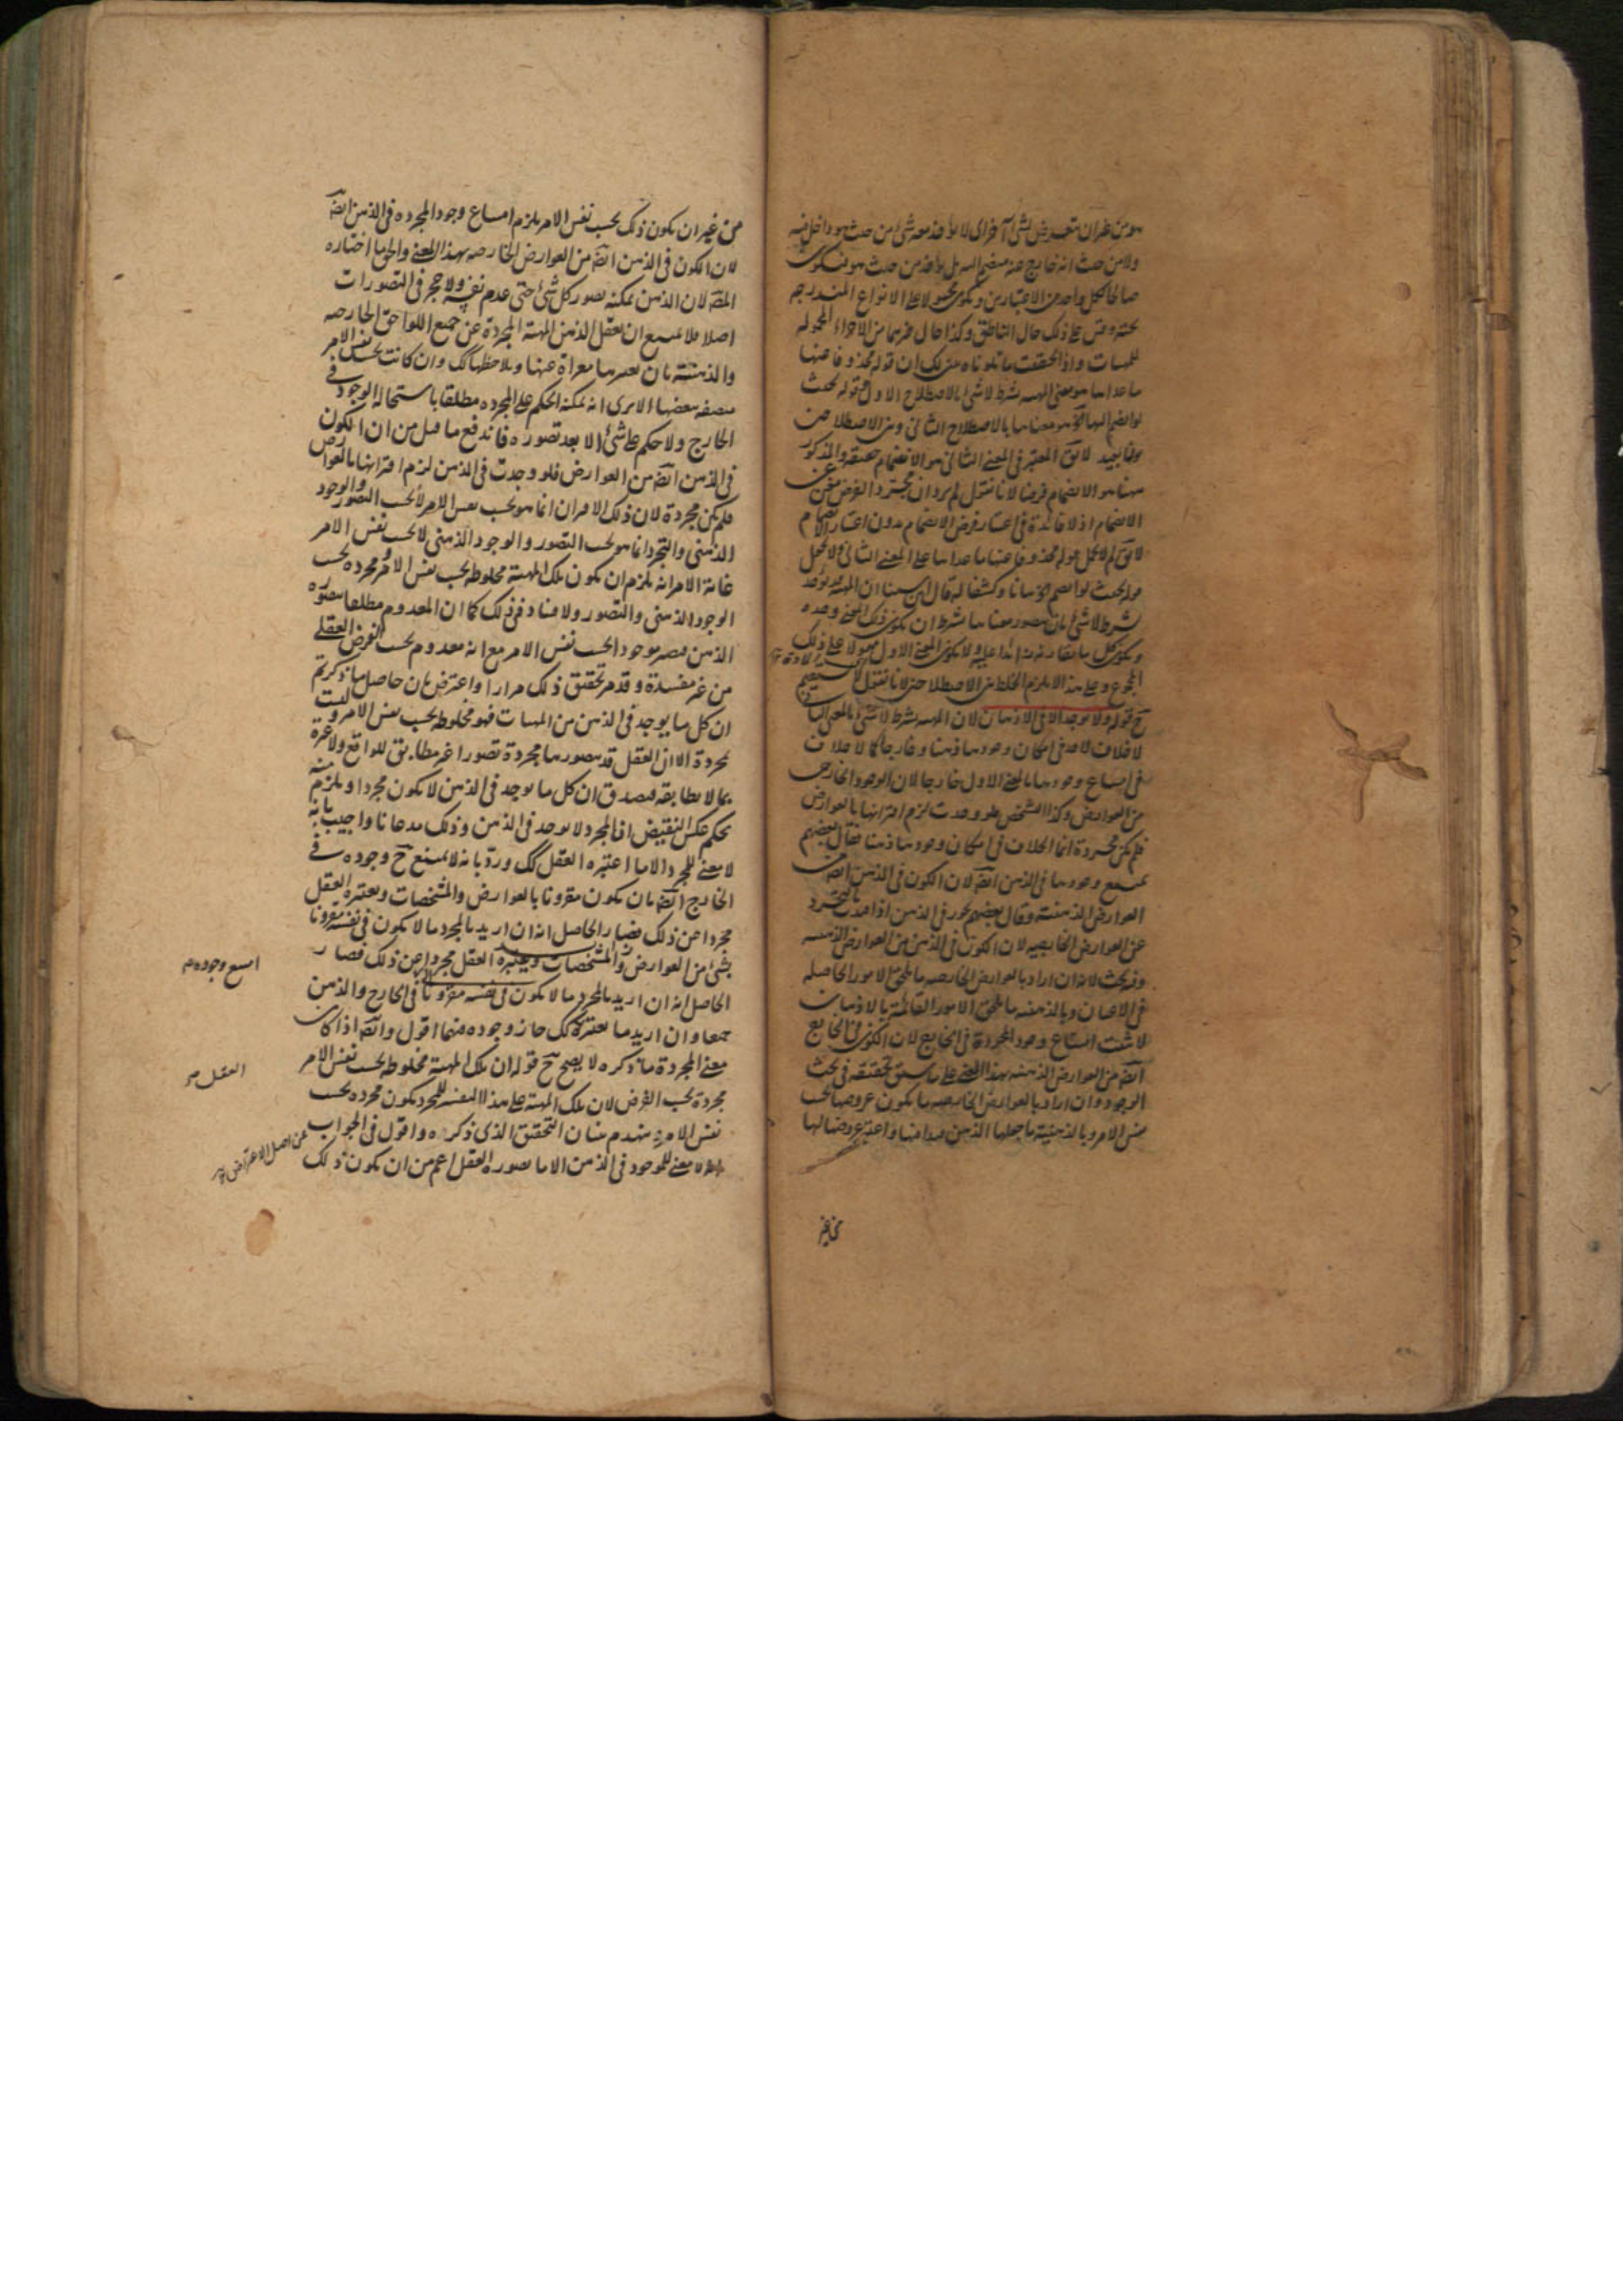 هو من غير ان يتعرض لشئ آخر اى لا يؤخذ معه شئ من حيث هو داخل فيه
ولا من حيث انه خارج عنه منضم اليه بل يؤخذ من حيث هو فيكون
صالحا لكل واحد من الاعتبارين ويكون محمولا على الانواع المندرجه
تحته وقس على ذلك حال الناطق وكذا حال غيرهما من الاجزاء المحموله
للمهيات واذا تحققت ما تلوناه عليك ان قوله محذوفا عنها
ما عداها هو معنى المهيه بشرط لا شئ بالاصطلاح الاول وقوله بحيث
لو انضم اليها آه هو معناها بالاصطلاح الثانى وبين الاصطلاحين
بون بعيد لا يق المعتبر فى المعنى الثانى هو الانضمام حقيقه والمذكور
ههنا هو الانضمام فرضا لانا نقول لم يرد ان مجرد الفرض مغن عن
الانضمام اذ لا فائدة فى اعتبار فرض الانضمام بدون اعتبار الانضمام
لا يق لم لا يحمل قوله محذوفا عنها ما عداها على المعنى الثانى ويحمل
قوله بحيث لو انضم آه بيانا وكشفا له قال ابن سينا ان المهيه قد تؤخذ
بشرط لا شئ بان يتصور معناها بشرط ان يكون ذلك المعنى وحده
ويكون كل ما يقارنه زائدا عليه ولا يكون المعنى الاول مقولا على ذلك
المجموع وعلى هذا لا يلزم الخلط بين الاصطلاحين لانا نقول لا يستقيم
ح قوله ولا يوجد الا فى الاذهان لان المهيه بشرط لا شئ بالمعنى الثانى
لا خلاف لاحد فى امكان وجودها ذهنا وخارجا كما لا خلاف
فى امتناع وجودها بالمعنى الاول خارجا لان الوجود الخارجى
من العوارض وكذا التشخص فلو وجدت لزم اقترانها بالعوارض
فلم تكن مجردة انما الخلاف فى امكان وجودها ذهنا فقال بعضهم
يمتنع وجودها فى الذهن ايضا لان الكون فى الذهن ايضا من
العوارض الذهنية وقال بعضهم يجوز فى الذهن اذا اخذت بالتجرد
عن العوارض الخارجيه لان الكون فى الذهن من العوارض الذهنيه
وفيه بحث لانه ان اراد بالعوارض الخارجيه ما يلحق الامور الحاصله
فى الاعيان وبالذهنيه ما يلحق الامور القائمة بالاذهان
لا يثبت امتناع وجود المجردة فى الخارج لان الكون فى الخارج
ايضا من العوارض الذهنيه بهذا المعنى على ما سبق تحقيقه فى بحث
الوجود وان اراد بالعوارض الخارجيه ما يكون عروضها بحسب
نفس الامر وبالذهنية ما جعلها الذهن قيدا فيها واعتبر عروضها لها
من غير
من غير ان يكون ذلك بحسب نفس الامر يلزم امتناع وجود المجرده فى الذهن ايضا
لان الكون فى الذهن ايضا من العوارض الخارجيه بهذا المعنى والحق ما اختاره
المصه لان الذهن يمكنه تصور كل شئ حتى عدم نفسه ولا حجر فى التصورات
اصلا فلا يمتنع ان يعقل الذهن المهية المجردة عن جميع اللواحق الخارجيه
والذهنية بان يعتبرها معراة عنها ويلاحظها كك وان كانت بحسب نفس الامر
متصفه ببعضها الا يرى انه يمكنه الحكم على المجرده مطلقا باستحالة الوجود فى
الخارج ولا حكم على شئ الا بعد تصوره فاندفع ما قيل من ان الكون
فى الذهن ايضا من العوارض فلو وجدت فى الذهن لزم اقترانها بالعوارض
فلم تكن مجردة لان ذلك الاقتران انما هو بحسب نفس الامر لا بحسب التصور والوجود
الذهنى والتجرد انما هو بحسب التصور والوجود الذهنى لا بحسب نفس الامر
غاية الامر انه يلزم ان يكون تلك المهية مخلوطه بحسب نفس الامر ومجرده بحسب
الوجود الذهنى والتصور ولا فساد فى ذلك كما ان المعدوم مطلقا يتصوره
الذهن فيصير موجودا بحسب نفس الامر مع انه معدوم بحسب الفرض العقلى
من غير مفسدة وقد مر تحقيق ذلك مرارا واعترض بان حاصل ما ذكرتم
ان كل ما يوجد فى الذهن من المهيات فهو مخلوطه بحسب نفس الامر وليست
بمجردة الا ان العقل قد يتصورها مجردة تصورا غير مطابق للواقع ولا عبرة
بما لا يطابقه فيصدق ان كل ما يوجد فى الذهن لا يكون مجردا ويلزم منه
بحكم عكس النقيض ان المجرد لا يوجد فى الذهن وذلك مدعانا واجيب بانه
لا معنى للمجرد الا ما اعتبره العقل كك ورد بانه لا يمتنع ح وجوده فى
الخارج ايضا بان يكون مقرونا بالعوارض والمشخصات ويعتبره العقل
مجردا عن ذلك فصار الحاصل انه ان اريد بالمجرد ما لا يكون فى نفسه مقرونا
بشئ من العوارض والمشخصات ويعتبره العقل مجردا عن ذلك فصار
الحاصل انه ان اريد بالمجرد ما لا يكون فى نفسه مقرونا فى الخارج والذهن
امتنع وجوده
جميعا وان اريد ما يعتبره كك جاز وجوده فيهما اقول وايضا اذا كان
العقل
معنى المجردة ما ذكره لا يصح ح قوله ان تلك المهية مخلوطه بحسب نفس الامر
مجردة بحسب الفرض لان تلك المهية على هذا التفسير للمجرد يكون مجرده بحسب
نفس الامر فينهدم بنيان التحقيق الذى ذكره واقول فى الجواب
عن اصل الاعتراض
لا معنى للموجود فى الذهن الا ما يصوره العقل اعم من ان يكون ذلك